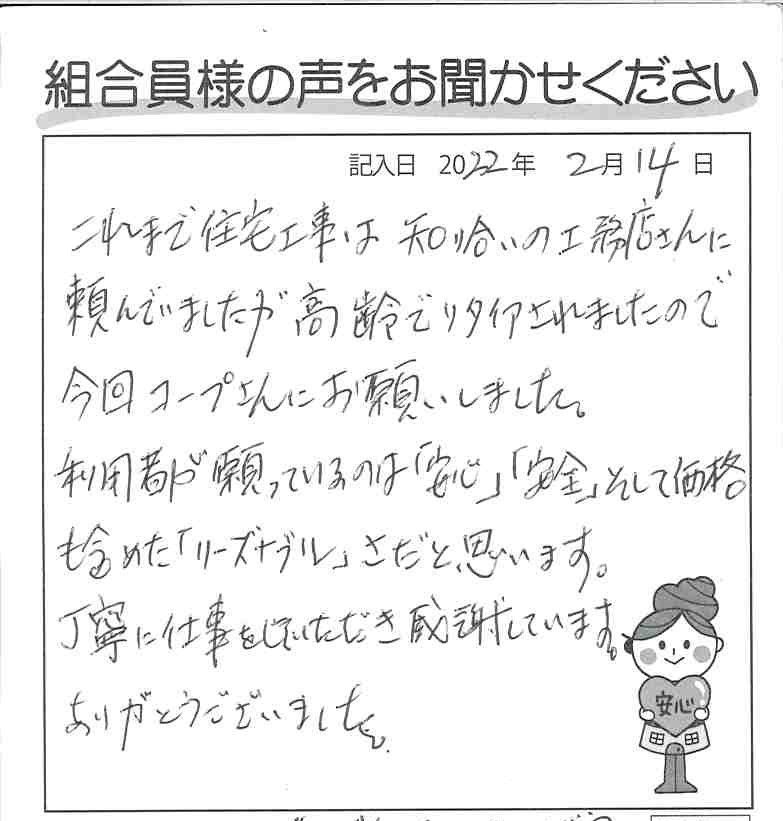 組合員様の声をお聞かせください
記入日 2022年 2月14日
これまで住宅工事は知り合いの工務店さんに
頼んでいましたが高齢でリタイアされましたので
今回コープさんにお願いしました。
利用者が願っているのは「安心」「安全」そして価格
も含めた「リーズナブル」さだと思います。
丁寧に仕事をしていただき感謝しています。
ありがとうございました。
安心